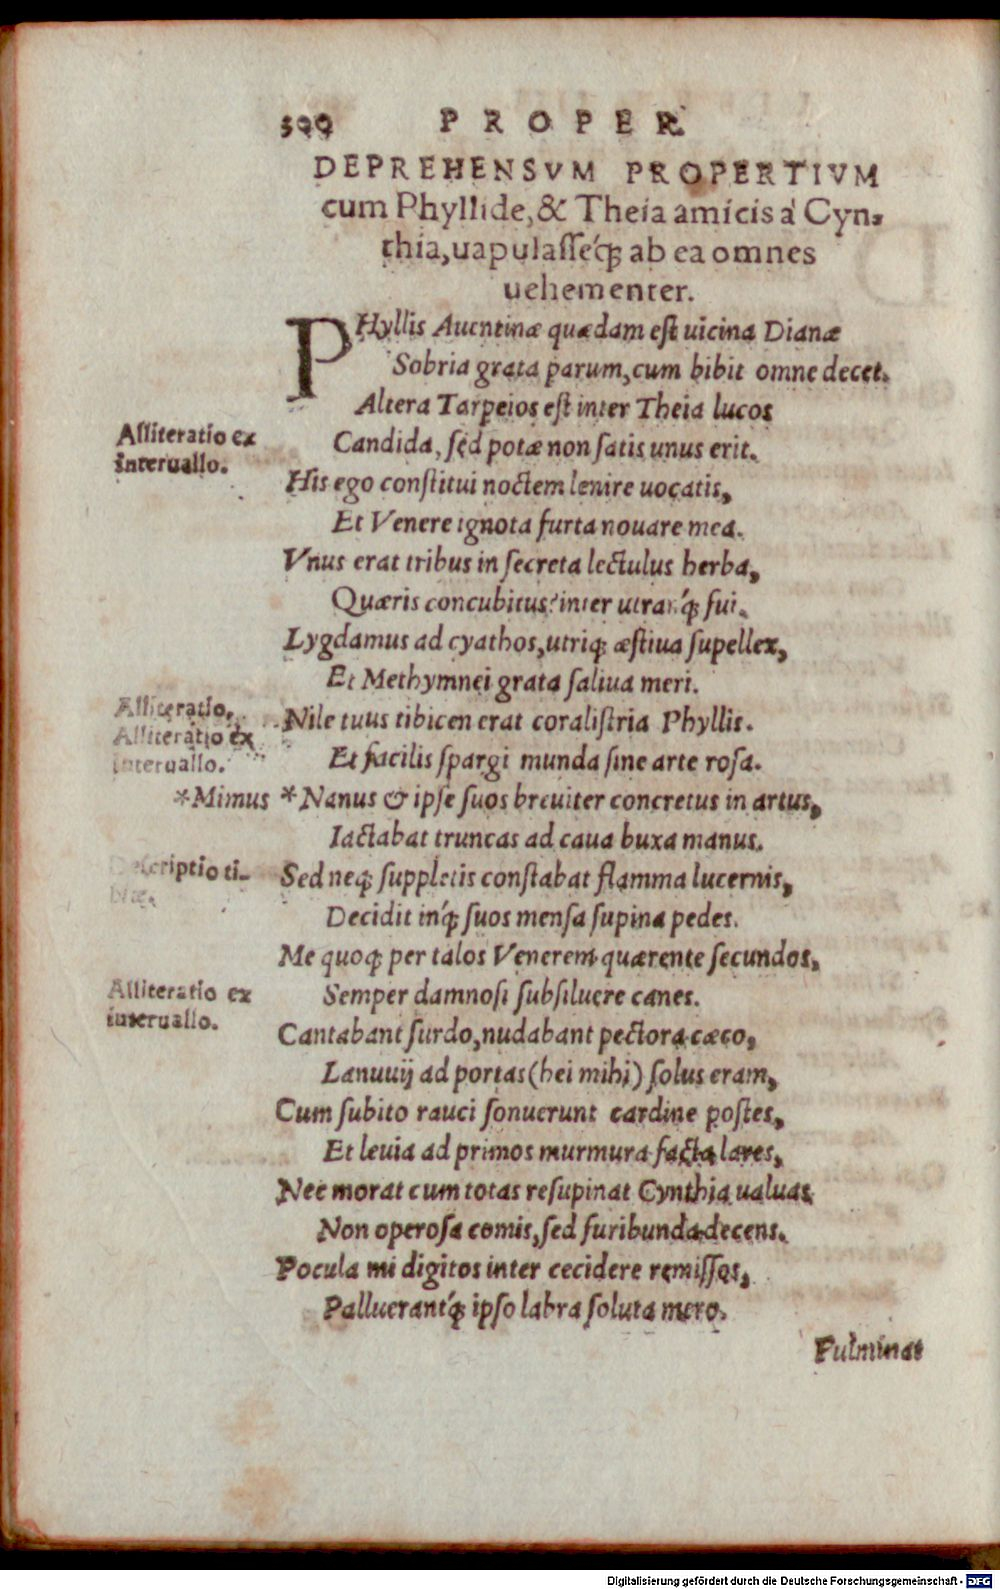 PROPER.
DEPREHENSVM PROPERTIVM
cum Phyllide, & Theia amicis a' Cyn-
thia, uapulasseq́; ab ea omnes
uehementer.
PHyllis Auentinæ quædam est uicina Dianæ
Sobria grata parum, cum bibit omne decet.
Altera Tarpeios est inter Theia lucos
Alliteratio ex
interuallo.
Candida, sed potæ non satis unus erit.
His ego constitui noctem lenire uocatis,
Et Venere ignota furta nouare mea.
Vnus erat tribus in secreta lectulus herba,
Quæris concubitus? inter utranq́; fui.
Lygdamus ad cyathos, utriq; æstiua supellex,
Et Methymnei grata saliua meri.
Alliteratio,
Alliteratio ex
interuallo.
Nile tuus tibicen erat coralistria Phyllis.
Et facilis spargi munda sine arte rosa.
*Mimus *Nanus & ipse suos breuiter concretus in artus,
Iactabat truncas ad caua buxa manus.
Descriptio ti-
biæ.
Sed neq; suppletis constabat flamma lucernis,
Decidit inq́; suos mensa supina pedes.
Me quoq; per talos Venerem quærente secundos,
Alliteratio ex
interuallo.
Semper damnosi subsiluere canes.
Cantabant surdo, nudabant pectora cæco,
Lanuuij ad portas (hei mihi) solus eram,
Cum subito rauci sonuerunt cardine postes,
Et leuia ad primos murmura facta lares,
Nec morat cum totas resupinat Cynthia ualuas
Non operosa comis, sed furibunda decens.
Pocula mi digitos inter cecidere remissos,
Palluerantq́; ipso labra soluta mero.
Fulminat
Digitalisierung gefördert durch die Deutsche Forschungsgemeinschaft - DFG